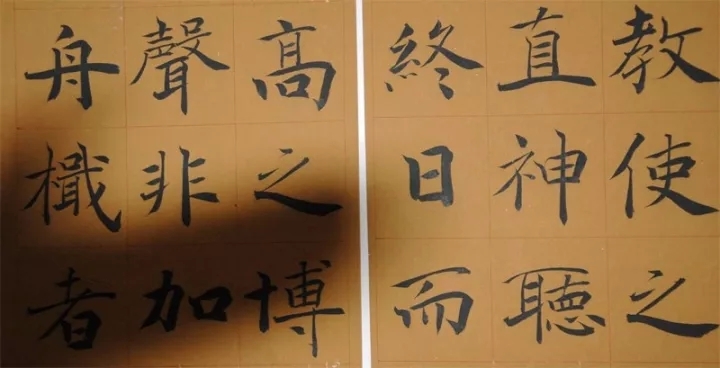 教使之
直神聽
終日而
髙之博
聲非加
舟檝者